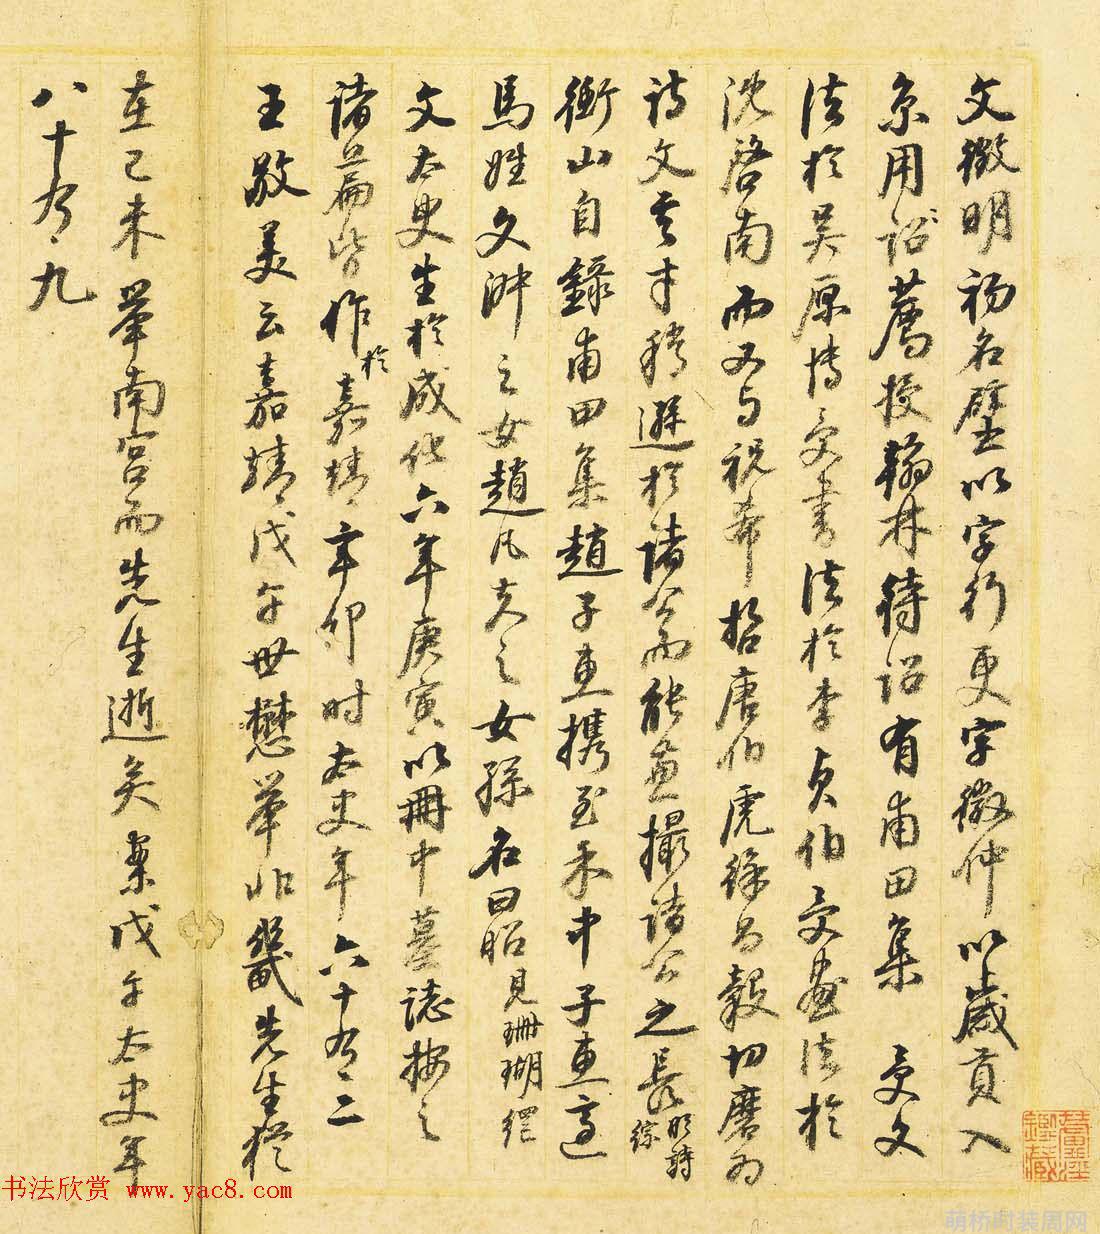 文徵明初名壁以字行更字徵仲以歲貢入
京用詔薦授翰林待詔有甫田集 受文
法於吳原博受書法於李貞伯受畫法於
沈啓南而又与祝希哲唐伯虎徐昌穀切磨為
詩文其才稍遜於諸公而能兼撮諸公之長 明詩綜
衡山自錄甫田集趙子惠攜至禾中子惠適
馬姓文 之女趙凡夫之女孫名曰昭見珊瑚網
文太史生於成化六年庚寅以冊中墓誌按之
諸篇皆作於嘉靖辛卯时太史年六十有二
王敬美云嘉靖戊午世懋舉 畿先生猶
在己未舉南宮而先生逝矣案戊午太史年
八十有九
書畫鑒藏
书法欣赏 www.yac8.com
萌桥时装周网